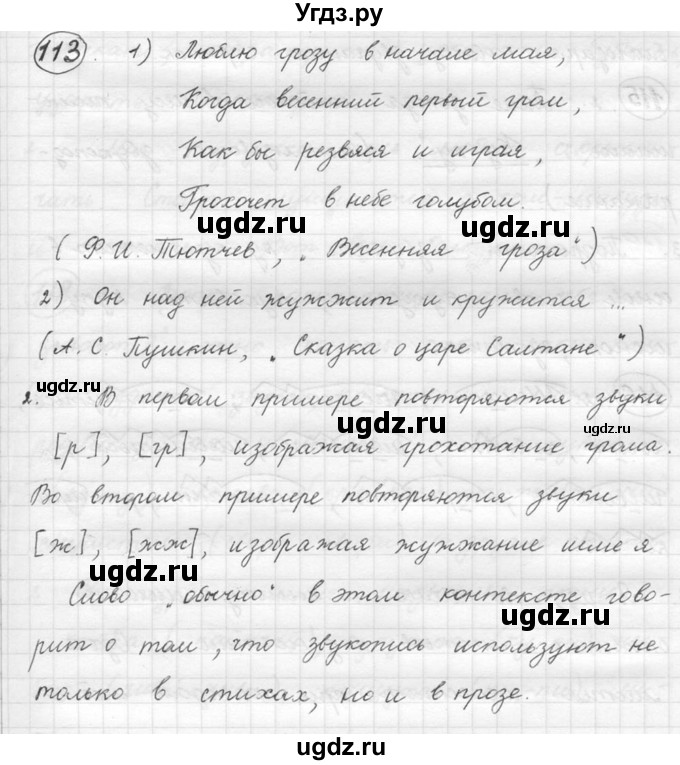 Угдз.ру
113. 1) Люблю грозу в начале мая,
Когда весенний первый гром,
Как бы резвяся и играя,
Грохочет в небе голубом.
ugdz.ru ugdz.ru
(Ф. И. Тютчев, „Весенняя гроза“)
2) Он над ней жужжит и кружится ...
(А. С. Пушкин, „Сказка о царе Салтане“)
ugdz.ru ugdz.ru
2. В первом примере повторяются звуки
ugdz.ru
[р], [гр], изображая грохотание грома.
Во втором примере повторяются звуки
[ж], [жж], изображая жужжание шмеля
ugdz.ru ugdz.ru
Слово „обычно“ в этом контексте гово-
рит о том, что звукопись используют не
только в стихах, но и в прозе.
ugdz.ru
ugdz.ru